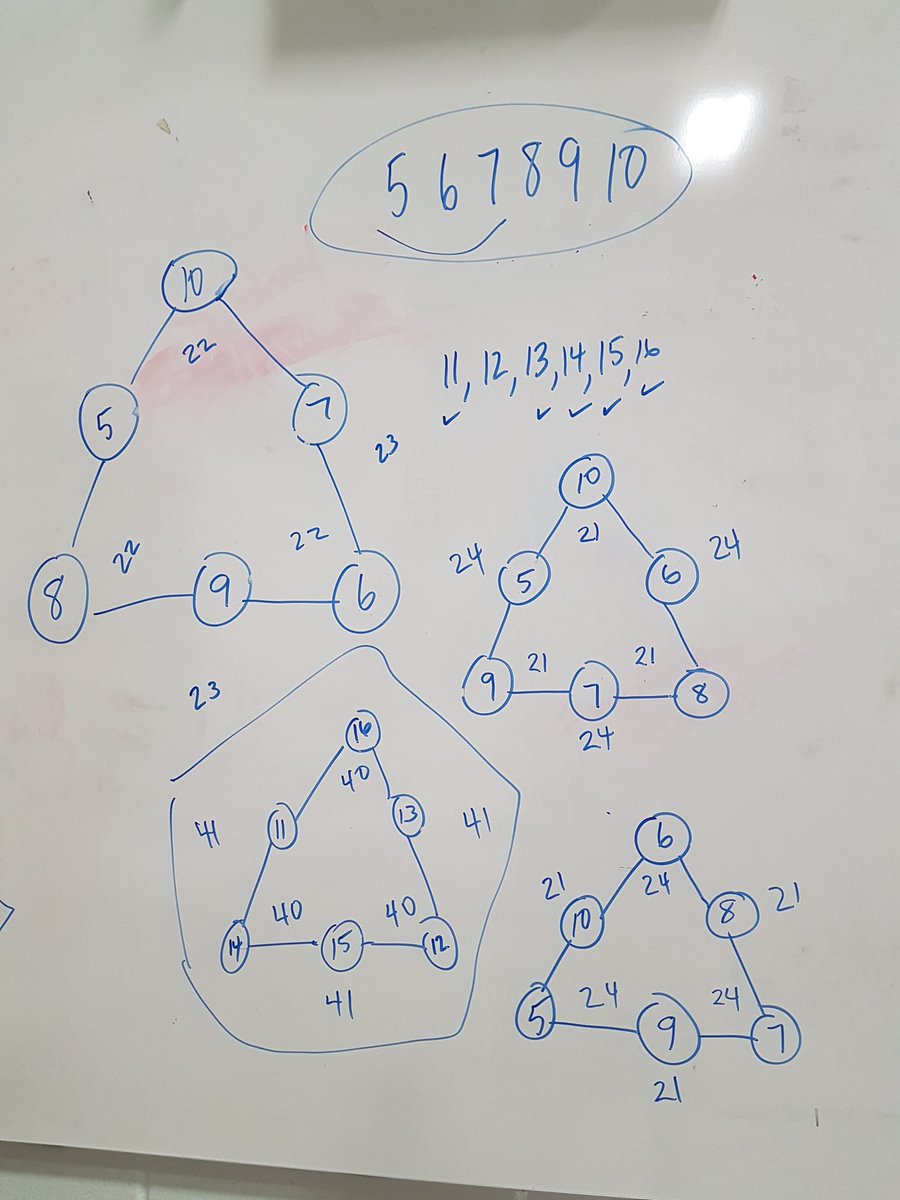 5 6 7 8 9 10
10
22
5
7
23
22
22
8
9
6
23
11, 12, 13, 14, 15, 16
✓ ✓ ✓ ✓ ✓
10
21
24
24
5
6
21
21
9
7
8
24
16
40
41
11
13
41
40
40
14
15
12
41
6
24
21
21
10
8
24
24
5
9
7
21